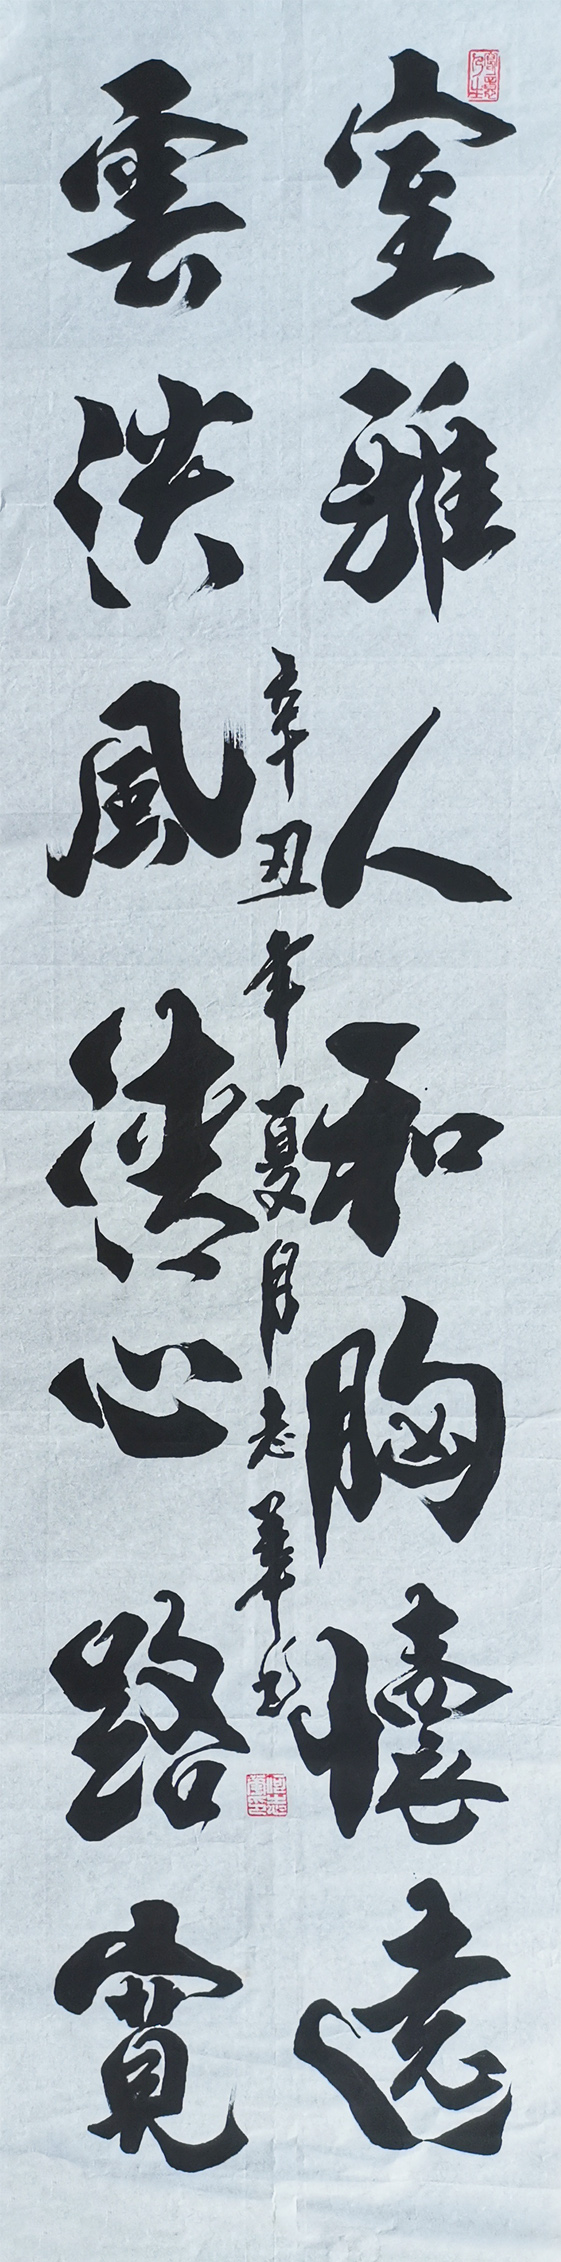 室雅人和胸懷遠
雲淡風清心路寬
辛丑年夏月志華書